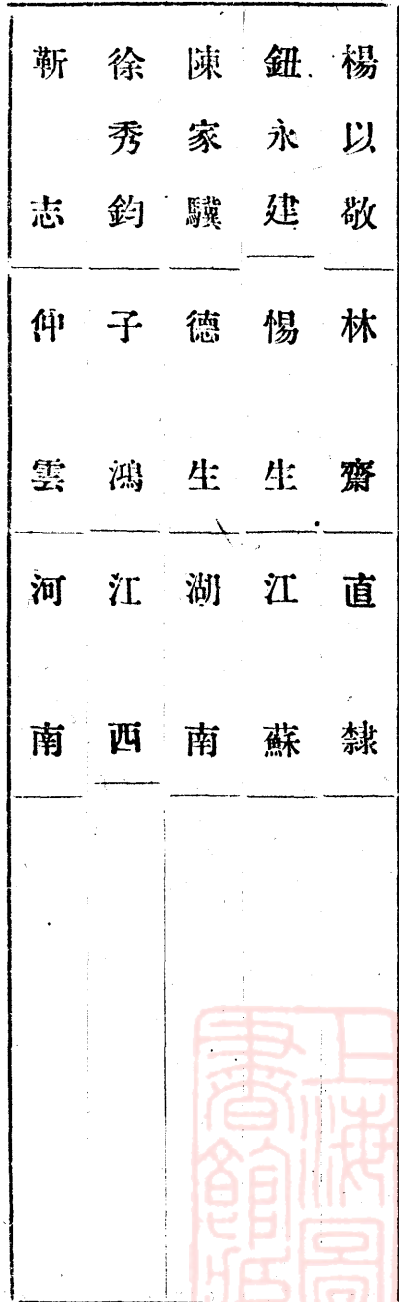 楊以敬 林齋 直隸
鈕永建 惕生 江蘇
陳家驥 德生 湖南
徐秀鈞 子鴻 江西
靳志 仲雲 河南
上海圖
書館